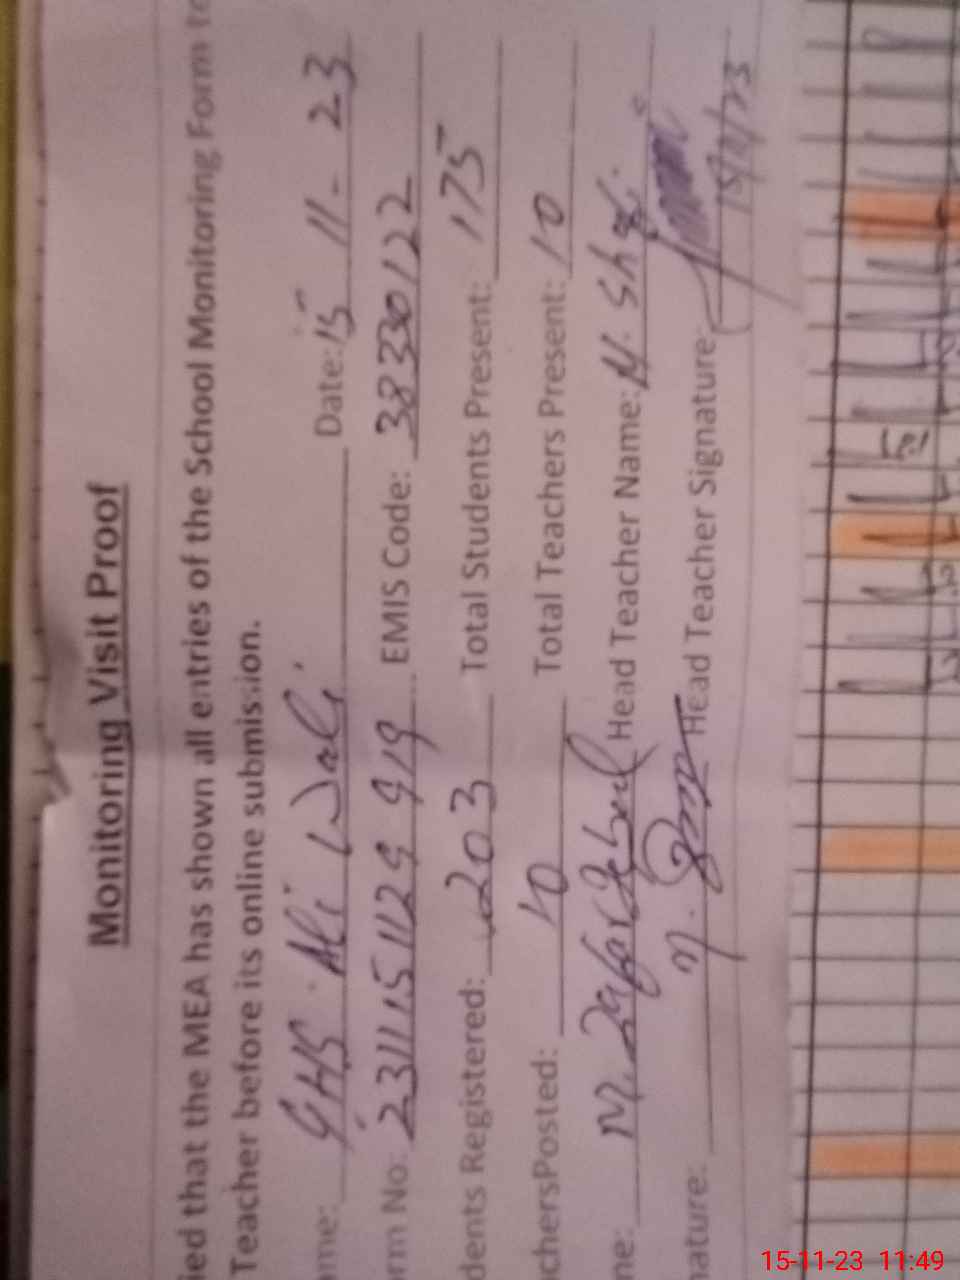 Monitoring Visit Proof
ied that the MEA has shown all entries of the School Monitoring Form to
Teacher before its online submission.
ame: GHS. Ali Wali Date: 15 11- 23
orm No: EMIS Code: 38330122
dents Registered: 203 Total Students Present: 175
chersPosted: 10 Total Teachers Present: 10
me: M. Zafar Head Teacher Name: M.
nature: Head Teacher Signature: 15/11/23
15-11-23 11:49